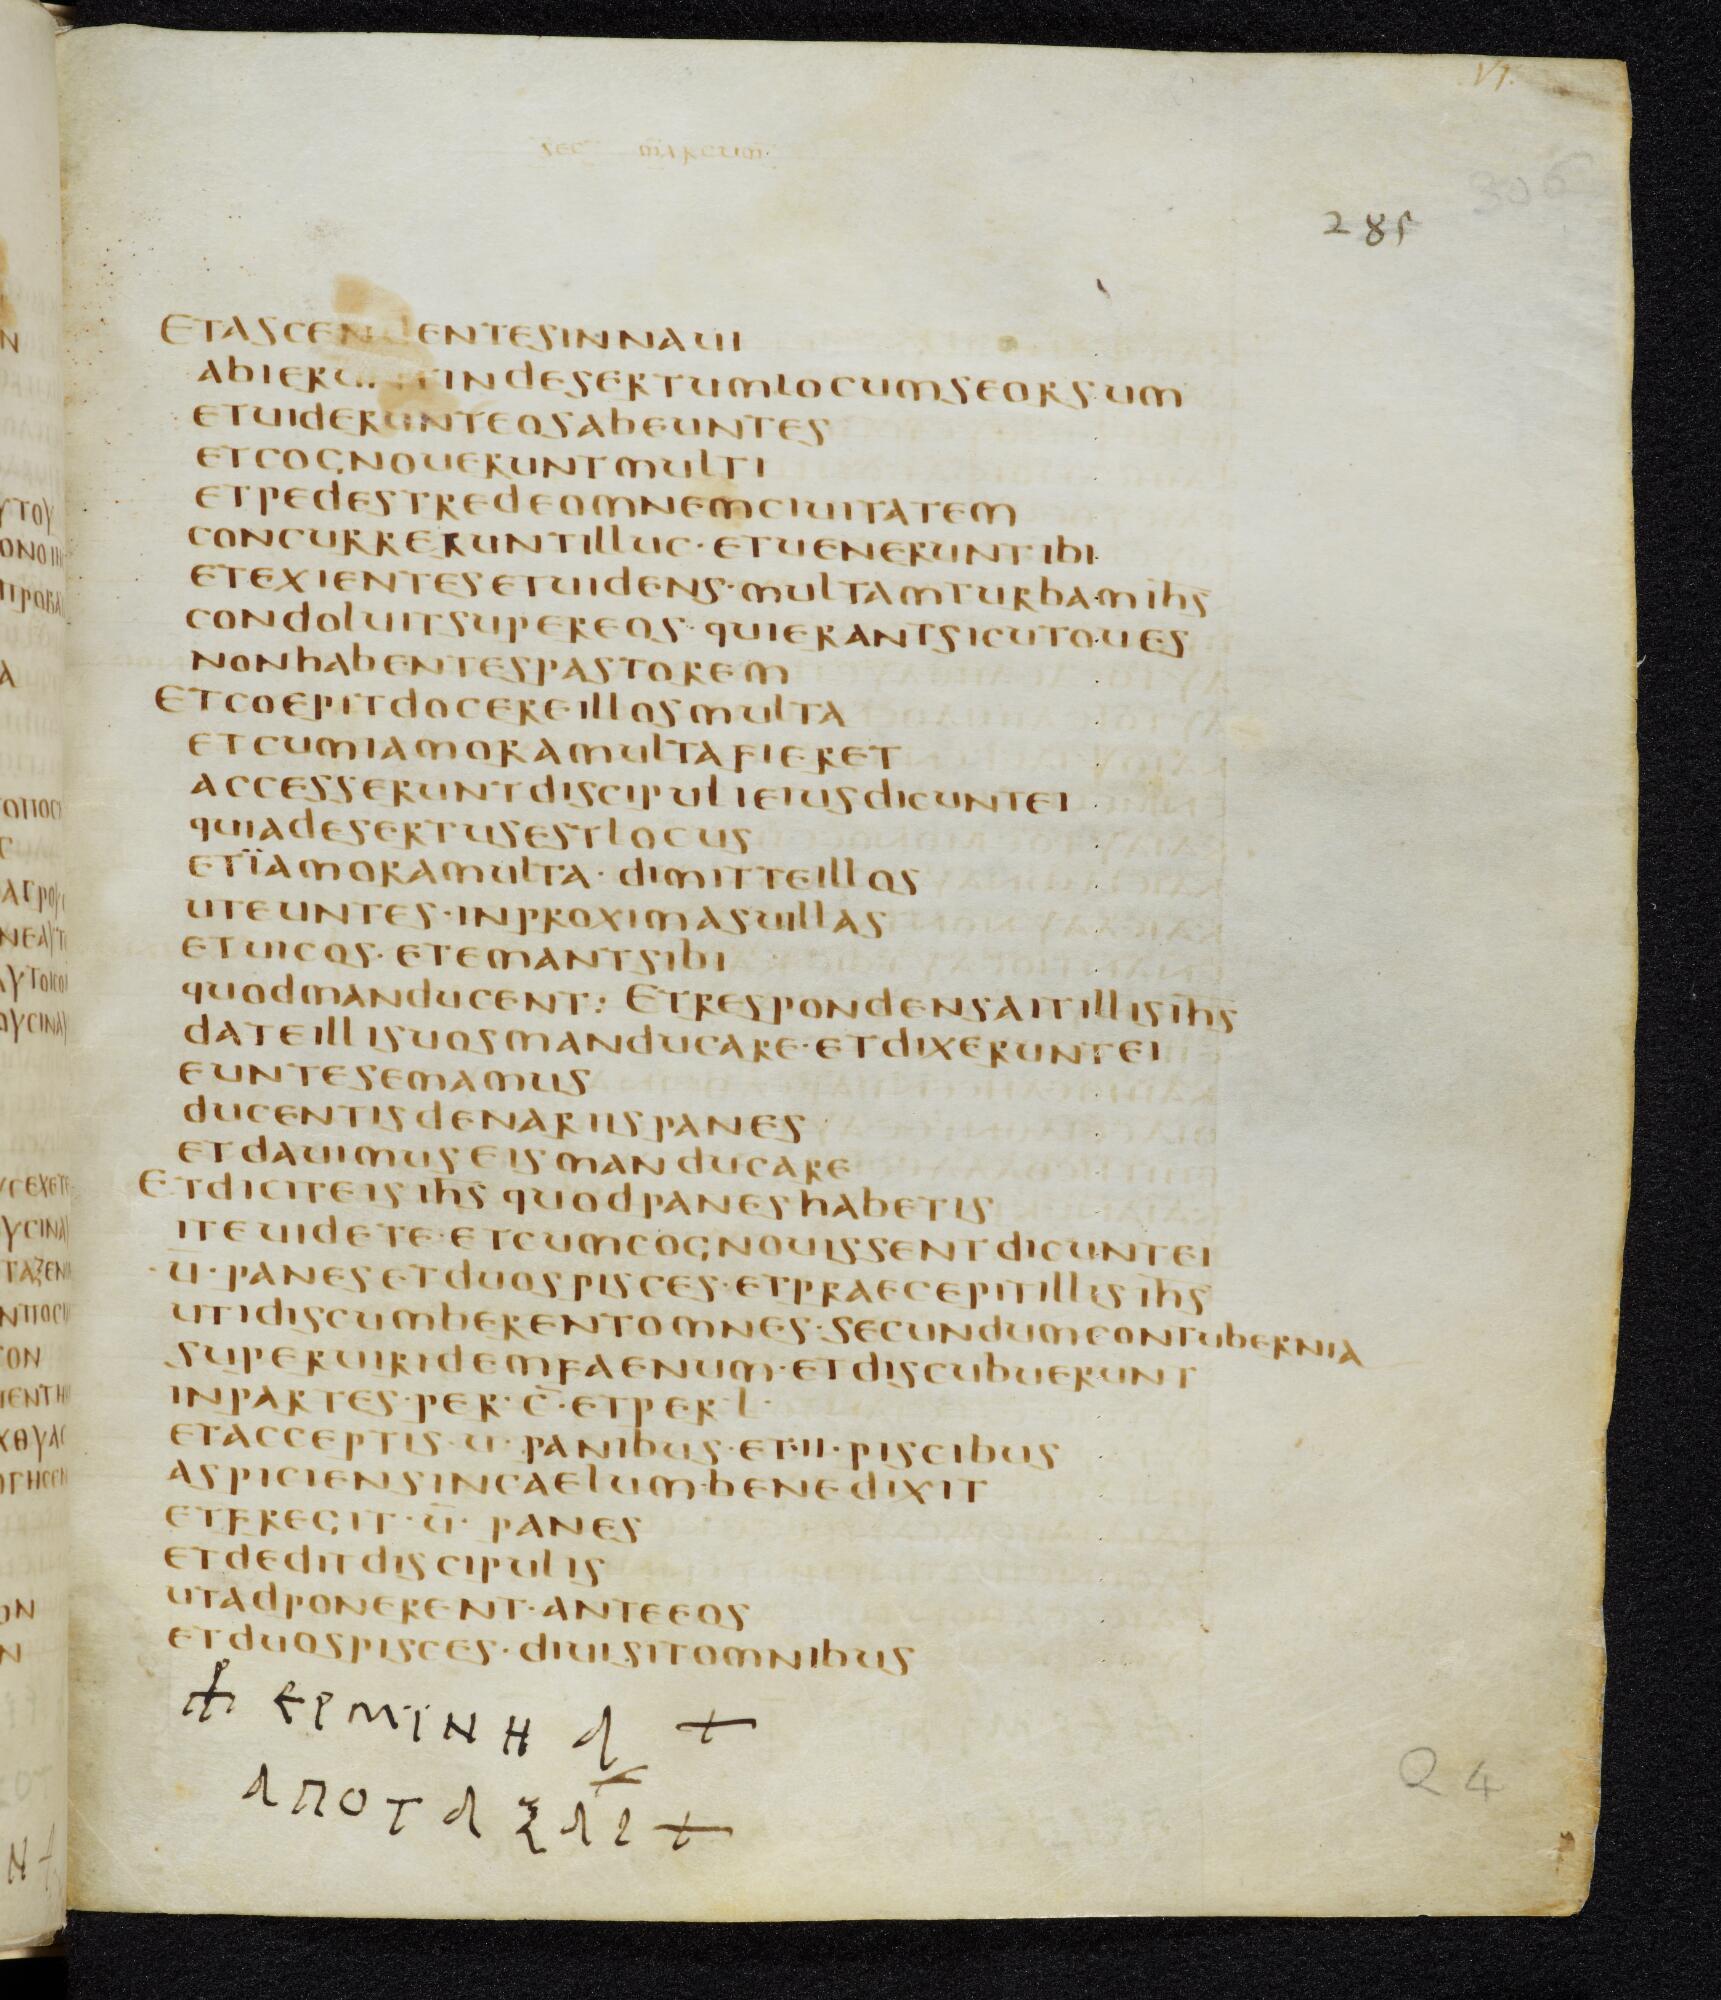 VI.
SEC MARCUM
306
285
ETASCENDENTESINNAUI
ABIERUNTINDESERTUMLOCUMSEORSUM
ETUIDERUNTEOSABEUNTES
ETCOGNOUERUNTMULTI
ETPEDESTREDEOMNEMCIUITATEM
CONCURRERUNTILLUC·ETUENERUNTIBI
ETEXIENTESETUIDENS·MULTAMTURBAMIH̅S̅
CONDOLUITSUPEREOS·QUIERANTSICUTOUES
NONHABENTESPASTOREM
ETCOEPITDOCEREILLOSMULTA
ETCUMIAMORAMULTAFIERET
ACCESSERUNTDISCIPULIEIUSDICUNTEI
QUIADESERTUSESTLOCUS
ETÏAMORAMULTA·DIMITTEILLOS
UTEUNTES·INPROXIMASUILLAS
ETUICOS·ETEMANTSIBI
QUODMANDUCENT: ETRESPONDENSAITILLISIH̅S̅
DATEILLISUOSMANDUCARE·ETDIXERUNTEI
EUNTESEMAMUS
DUCENTISDENARIISPANES
ETDAUIMUSEISMANDUCARE
ETDICITEISIH̅S̅ QUODPANESHABETIS
ITEUIDETE·ETCUMCOGNOUISSENTDICUNTEI
·U̅·PANESETDUOSPISCES·ETPRAECEPITILLISIH̅S̅
UTIDISCUMBERENTOMNES·SECUNDUMCONTUBERNIA
SUPERUIRIDEMFAENUM·ETDISCUBUERUNT
INPARTES·PER·C̅·ETPER·L·
ETACCEPTIS·U·PANIBUS·ET·II·PISCIBUS
ASPICIENSINCAELUM·BENEDIXIT
ETFREGIT·U̅· PANES
ETDEDITDISCIPULIS
UTADPONERENT·ANTEEOS
ETDUOSPISCES·DIUISITOMNIBUS
ΕΡΜΪΝΗΑ +
ΑΠΟΤΑΞΑΙ +
Q 4